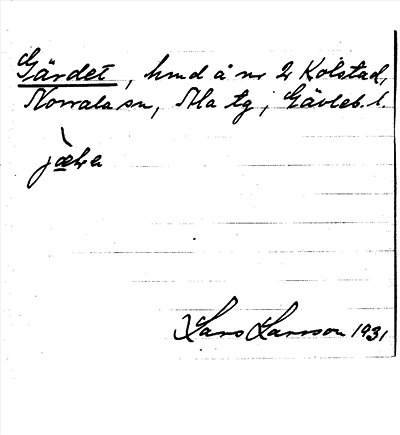 Gärdet, hmd å nr 2 Kolstad,
Norrala sn, Ala tg, Gävleb. l.
Lars Larsson 1931